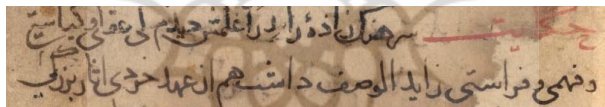 حکایت سرهنگ زاده را بر در اغلمش دیدم که عقل و کیاستی
و فهم و فراستی زاید الوصف داشت هم از عهد خردی اثار بزرگی